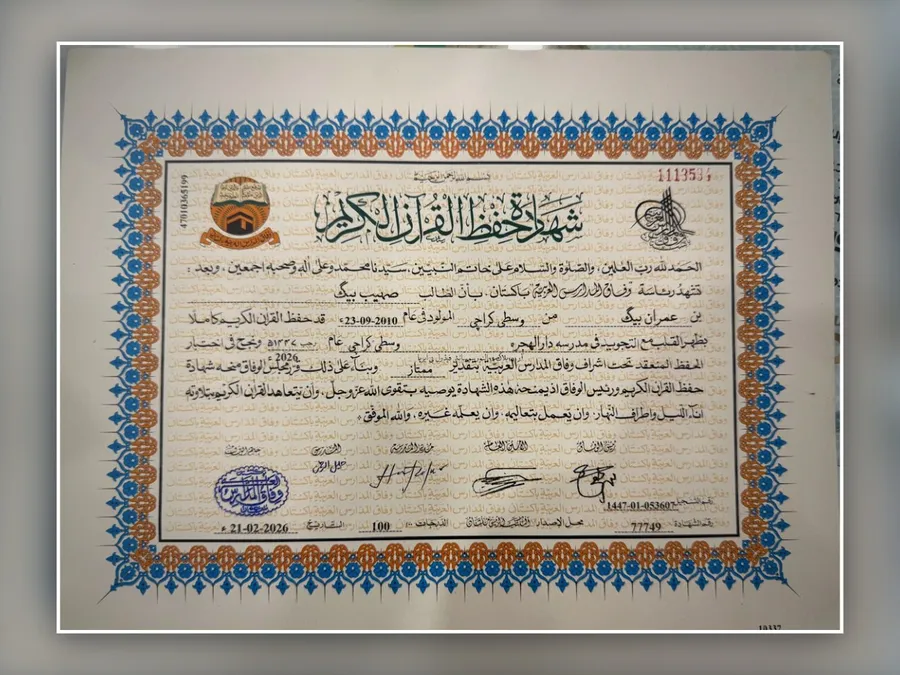 بسم الله الرحمن الرحيم
1113534
47010365199
شهادة حفظ القرآن الكريم
الحمد لله رب العلمين، والصلوة والسلام على خاتم النبيين، سيدنا محمد وعلى آله وصحبه اجمعين، وبعد:
تشهد رئاسة وفاق المدارس العربية باكستان، بأن الطالب صهيب بيگ
بن عمران بيگ من وسطی کراچی المولود في عام 23-09-2010ء قد حفظ القرآن الكريم كاملا
بظهر القلب مع التجويد في مدرسه دار الهجره وسطی کراچی عام رجب ١٤٤٧ھ ونجح في اختبار
2026
الحفظ المنعقد تحت اشراف وفاق المدارس العربية بتقدير ممتاز وبناء على ذلك قرر مجلس الوفاق منحه شهادة
حفظ القرآن الكريم ورئيس الوفاق اذ يمنحه هذه الشهادة يوصيه بتقوى الله عز وجل، وان يتعاهد القرآن الكريم بتلاوته
آناء الليل واطراف النهار، وان يعمل بتعاليمه، وان يعلمه غيره، والله الموفق
رئيس الوفاق الأمين العام مدير المدرسة المدرس
خليل الرحمن
وفاق المدارس العربية
رقم التسجيل 1447-01-053607
رقم الشهادة 77749 محل الاصدار الدرجات ١٠٠ 100 التاريخ 21-02-2026 ء
10337